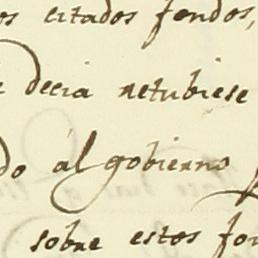 os citados fondos,
e decia retubiese
do ál gobierno
sobre estos fon